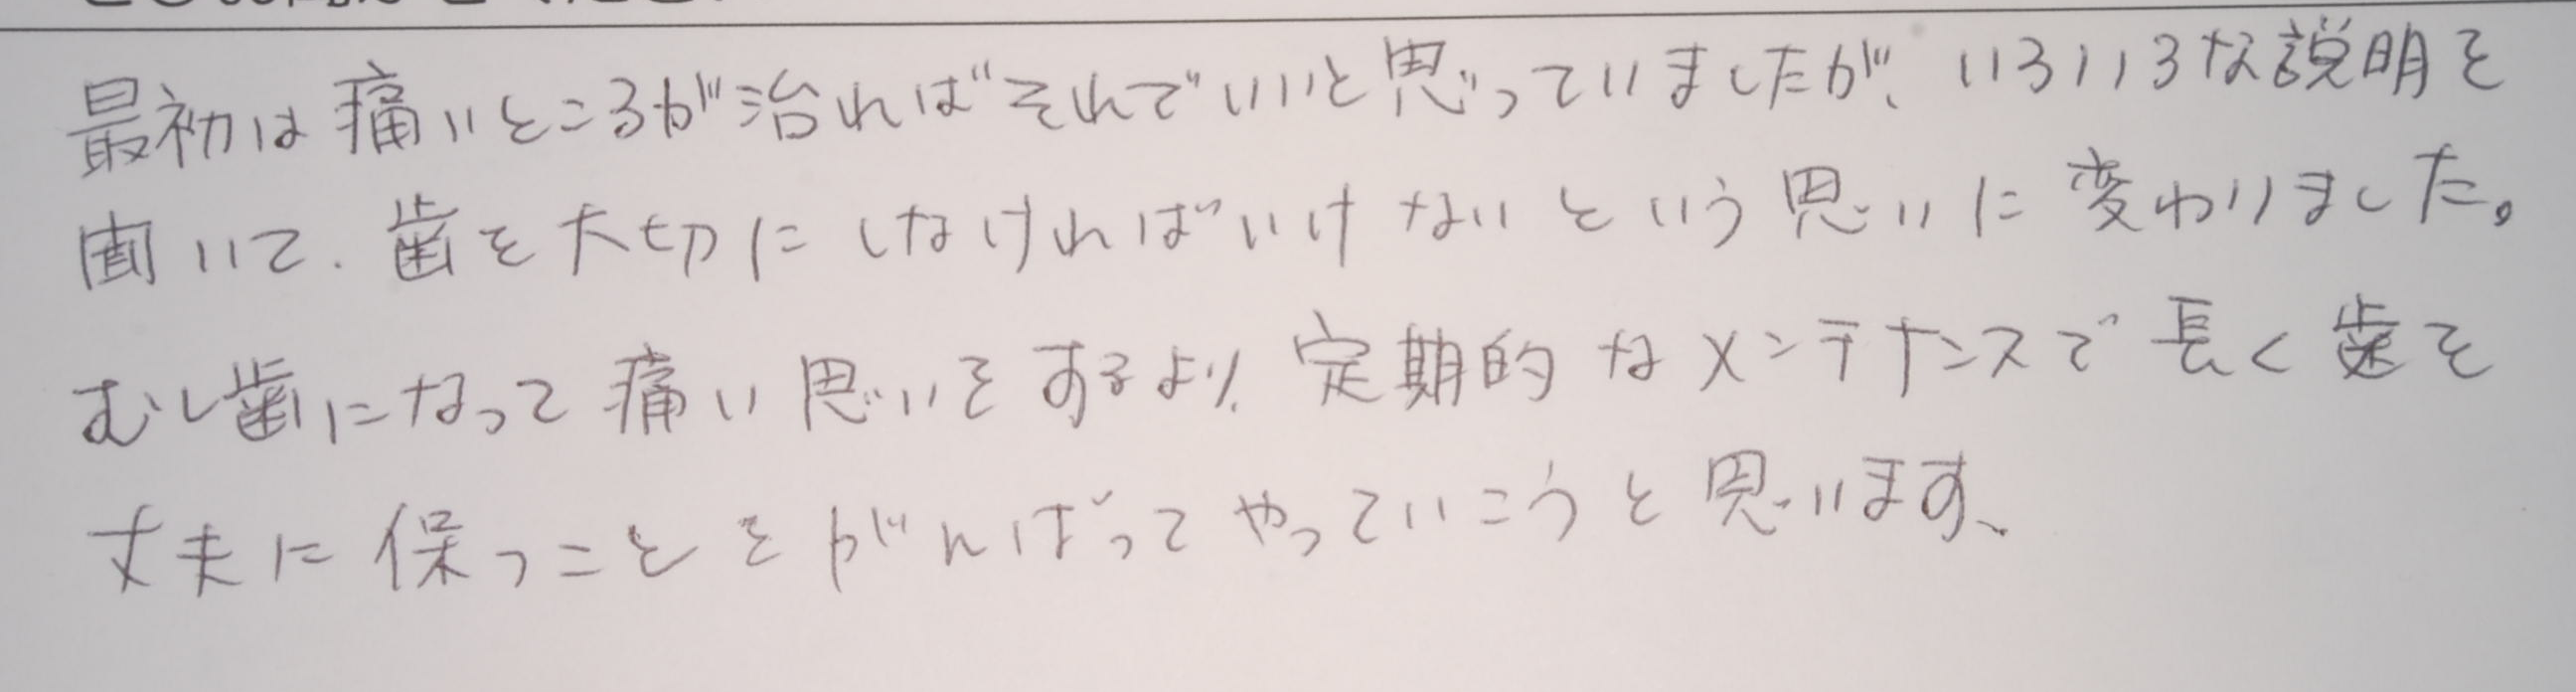 最初は痛いところが治ればそれでいいと思っていましたが、いろいろな説明を
聞いて、歯を大切にしなければいけないという思いに変わりました。
むし歯になって痛い思いをするより、定期的なメンテナンスで長く歯を
丈夫に保つことをがんばってやっていこうと思います、